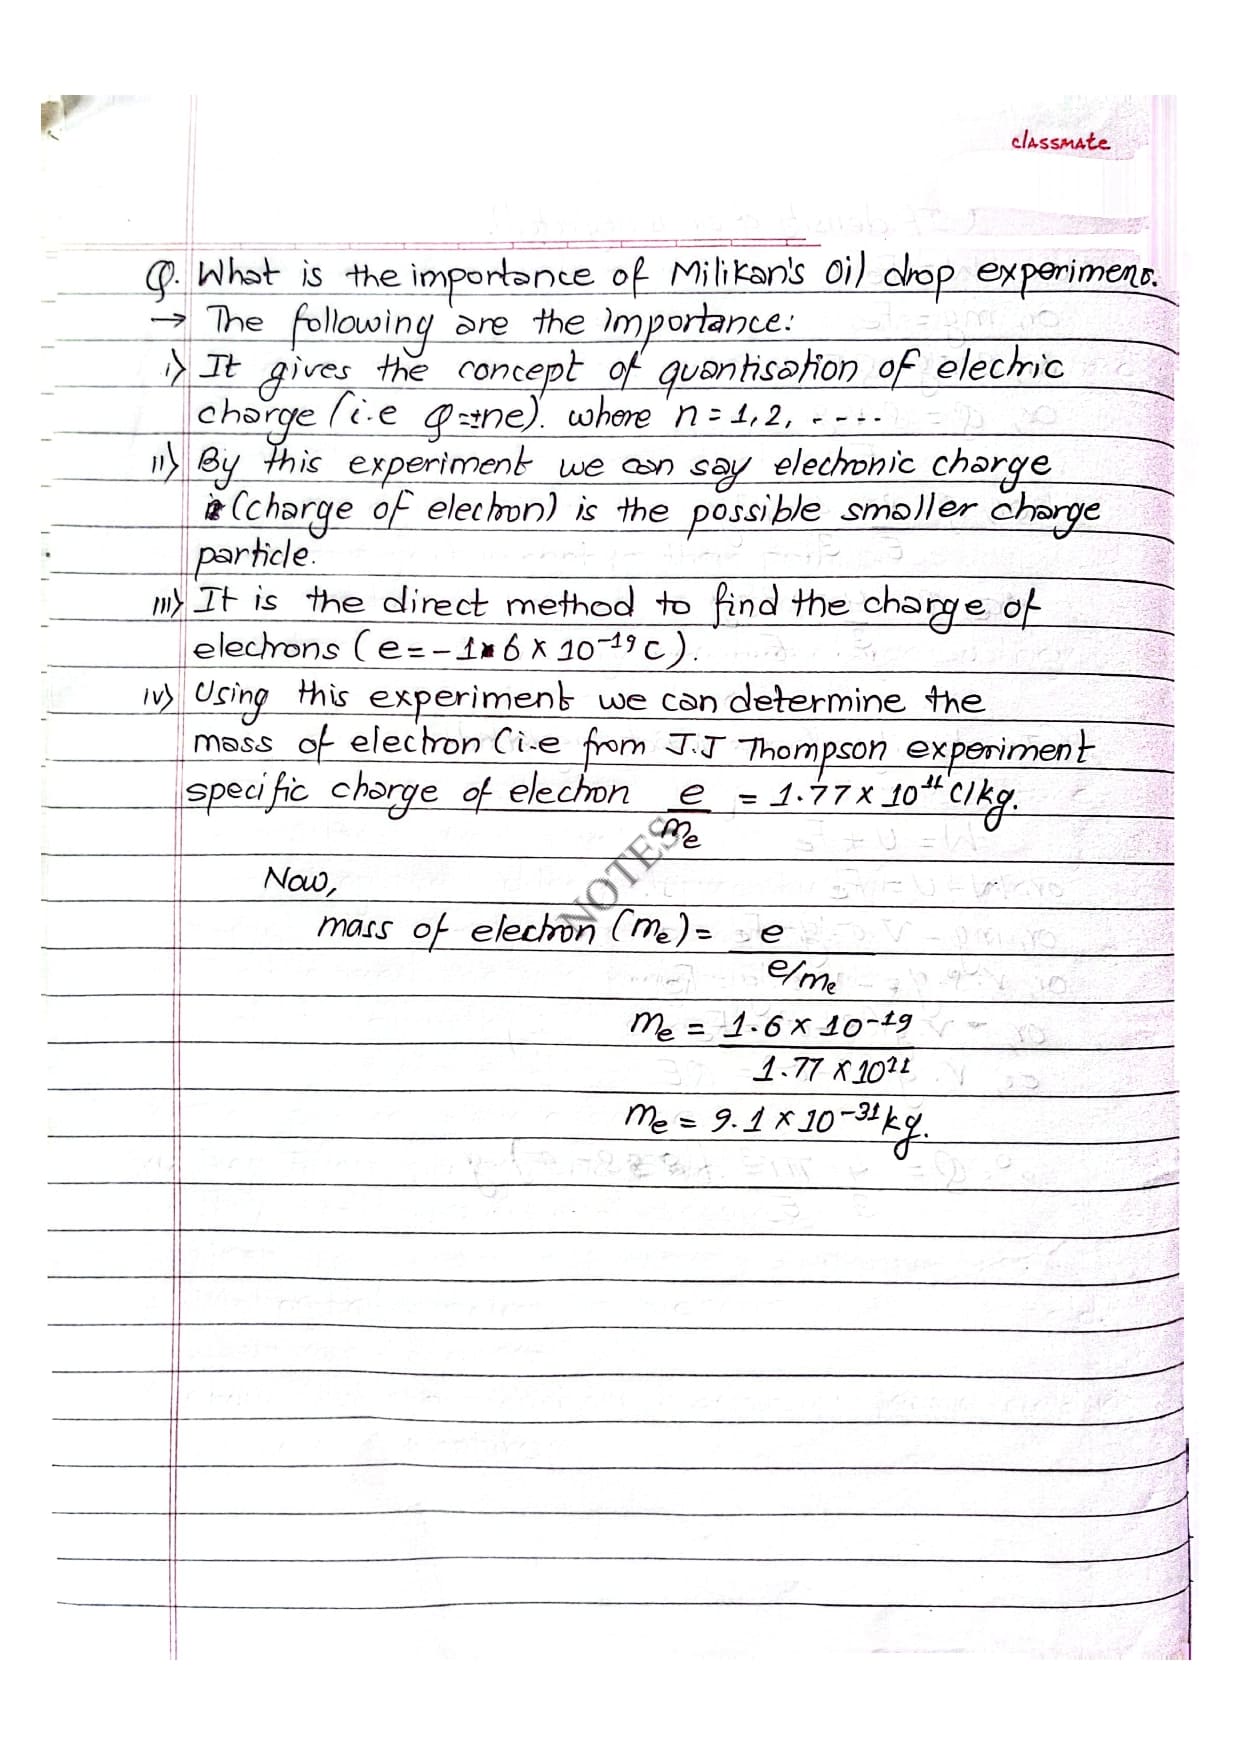 classmate
Q. What is the importance of Milikan's Oil drop experiment.
→ The following are the importance:
i) It gives the concept of quantisation of electric
charge (i.e Q=±ne). where n = 1, 2, - - - -.
ii) By this experiment we can say electronic charge
(charge of electron) is the possible smaller charge
particle.
iii) It is the direct method to find the charge of
electrons (e = - 1.6 × 10⁻¹⁹ C).
iv) Using this experiment we can determine the
mass of electron (i.e from J.J Thompson experiment
specific charge of electron e/mₑ = 1.77 × 10¹¹ C/kg.
NOTES
Now,
mass of electron (mₑ) = e
e/mₑ
mₑ = 1.6 × 10⁻¹⁹
1.77 × 10¹¹
mₑ = 9.1 × 10⁻³¹ kg.